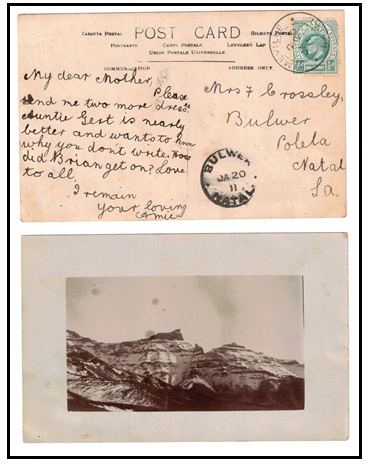 CARLUTA POSTAL POST CARD BILHETE POSTAL
POSTKARTE CARTE POSTALE LEVELEZŐ LAP
UNION POSTALE UNIVERSELLE
COMMUNICATION
ADDRESS ONLY
My dear Mother,
Please
send me two more dresses.
Auntie Gert is nearly
better and wants to know
why you don't write. How
did Brian get on? Love
to all.
I remain
your loving
Amie
Mrs F Crossley,
Bulwer
Polela
Natal
Sa.
BULWER
JA 20
11
NATAL